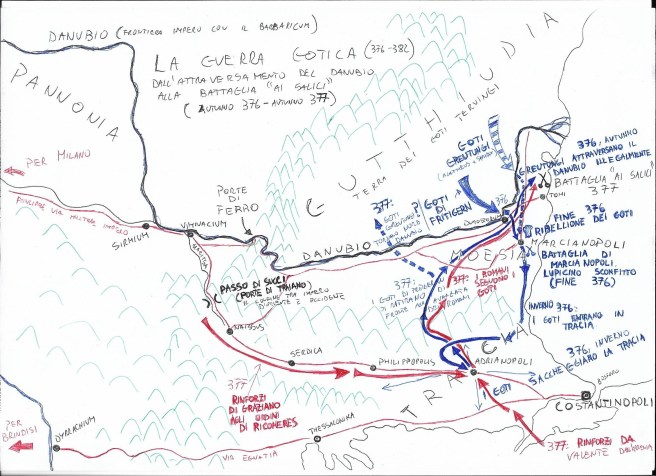 DANUBIO (FRONTIERA IMPERO CON IL BARBARICUM)
LA GUERRA GOTICA (376-382)
DALL'ATTRAVERSAMENTO DEL DANUBIO
ALLA BATTAGLIA "AI SALICI"
(AUTUNNO 376-AUTUNNO 377)
PANNONIA
GUTTHIUDIA
TERRA DEI GOTI TERVINGI
GOTI
GREUTUNGI
376, AUTUNNO
GREUTUNGI ATTRAVERSANO IL
DANUBIO ILLEGALMENTE
BATTAGLIA "AI SALICI"
377
TOMI
PER MILANO
PRINCIPALE VIA MILITARE IMPERO
SIRMIUM
VIMINACIUM
PORTE
DI
FERRO
DANUBIO
377:
GOTI
?
GOTI
DI
FRITIGERN
376
FINE 376
RIBELLIONE DEI GOTI
MARCIANOPOLI
MOESIA
BATTAGLIA DI
MARCIANOPOLI
LUPICINO SCONFITTO
(FINE 376)
PASSO DI SUCCI
(PORTE DI TRAIANO)
IL CONFINE TRA IMPERO
D'ORIENTE E OCCIDENTE
377:
I GOTI
SI RITIRANO DI
FRONTE
DEI ROMANI
377: I ROMANI
SEGUONO I
GOTI
INVERNO 376:
I GOTI ENTRANO IN
TRACIA
NAISSUS
SERDICA
PHILIPPOPOLIS
ADRIANOPOLI
TRACIA
376, INVERNO
I GOTI SACCHEGGIANO LA TRACIA
377
RINFORZI
DI GRAZIANO
AGLI ORDINI
DI RICOMERES
COSTANTINOPOLI
THESSALONICA
VIA EGNATIA
DYRRACHIUM
PER
BRINDISI
377: RINFORZI DA
VALENTE